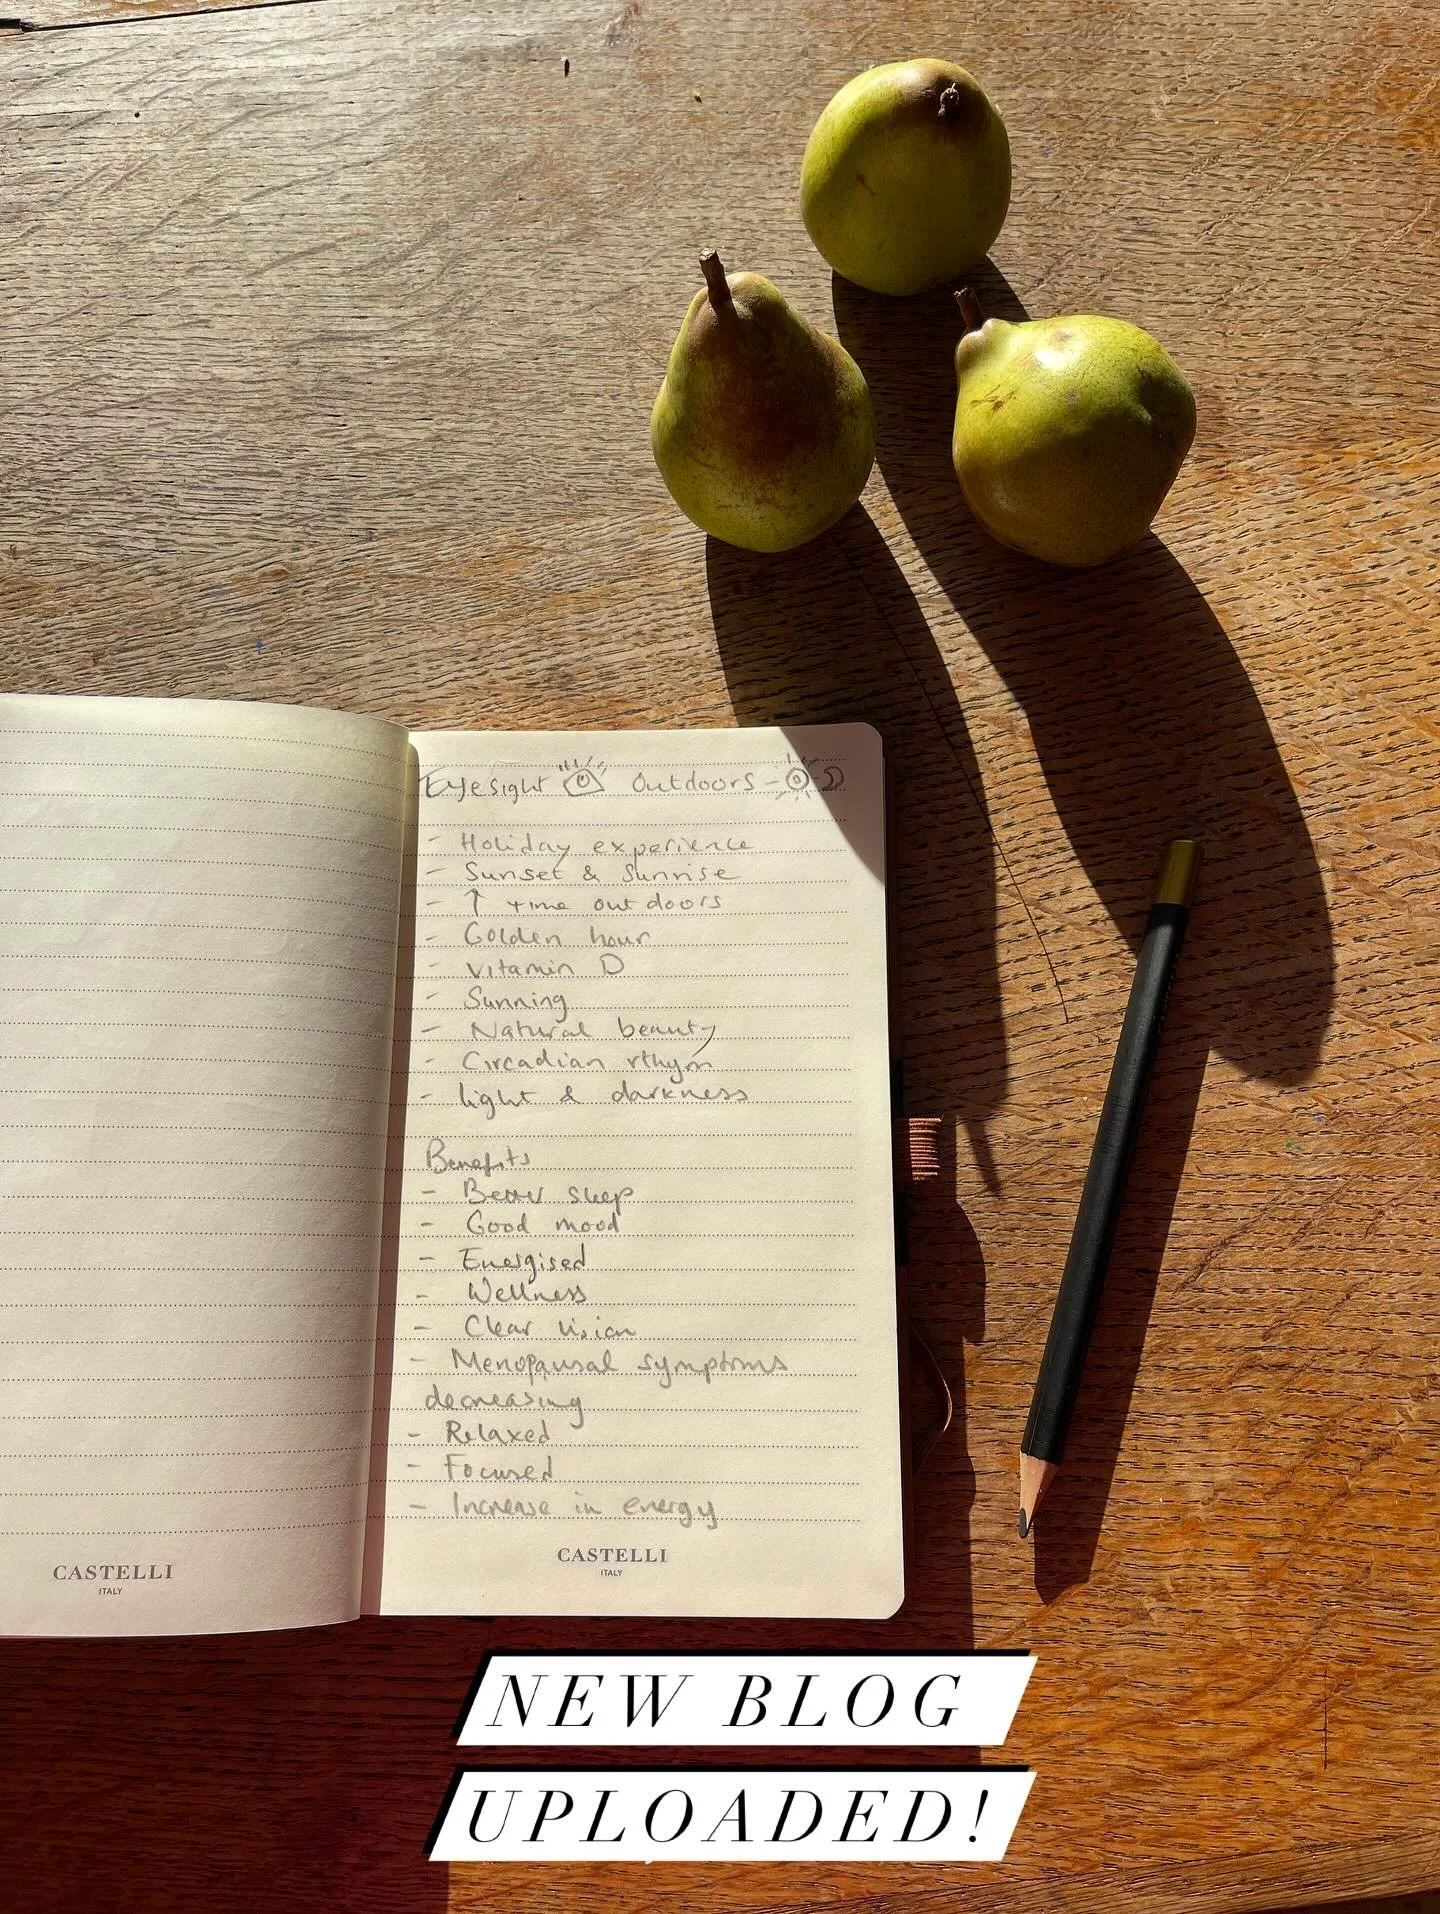 Eyesight Outdoors -
- Holiday experience
- Sunset & Sunrise
- ↑ time outdoors
- Golden hour
- Vitamin D
- Sunning
- Natural beauty
- Circadian rthym
- light & darkness
Benefits
- Better sleep
- Good mood
- Energised
- Wellness
- Clear vision
- Menopausal symptoms
decreasing
- Relaxed
- Focused
- Increase in energy
CASTELLI
ITALY
CASTELLI
ITALY
NEW BLOG
UPLOADED!